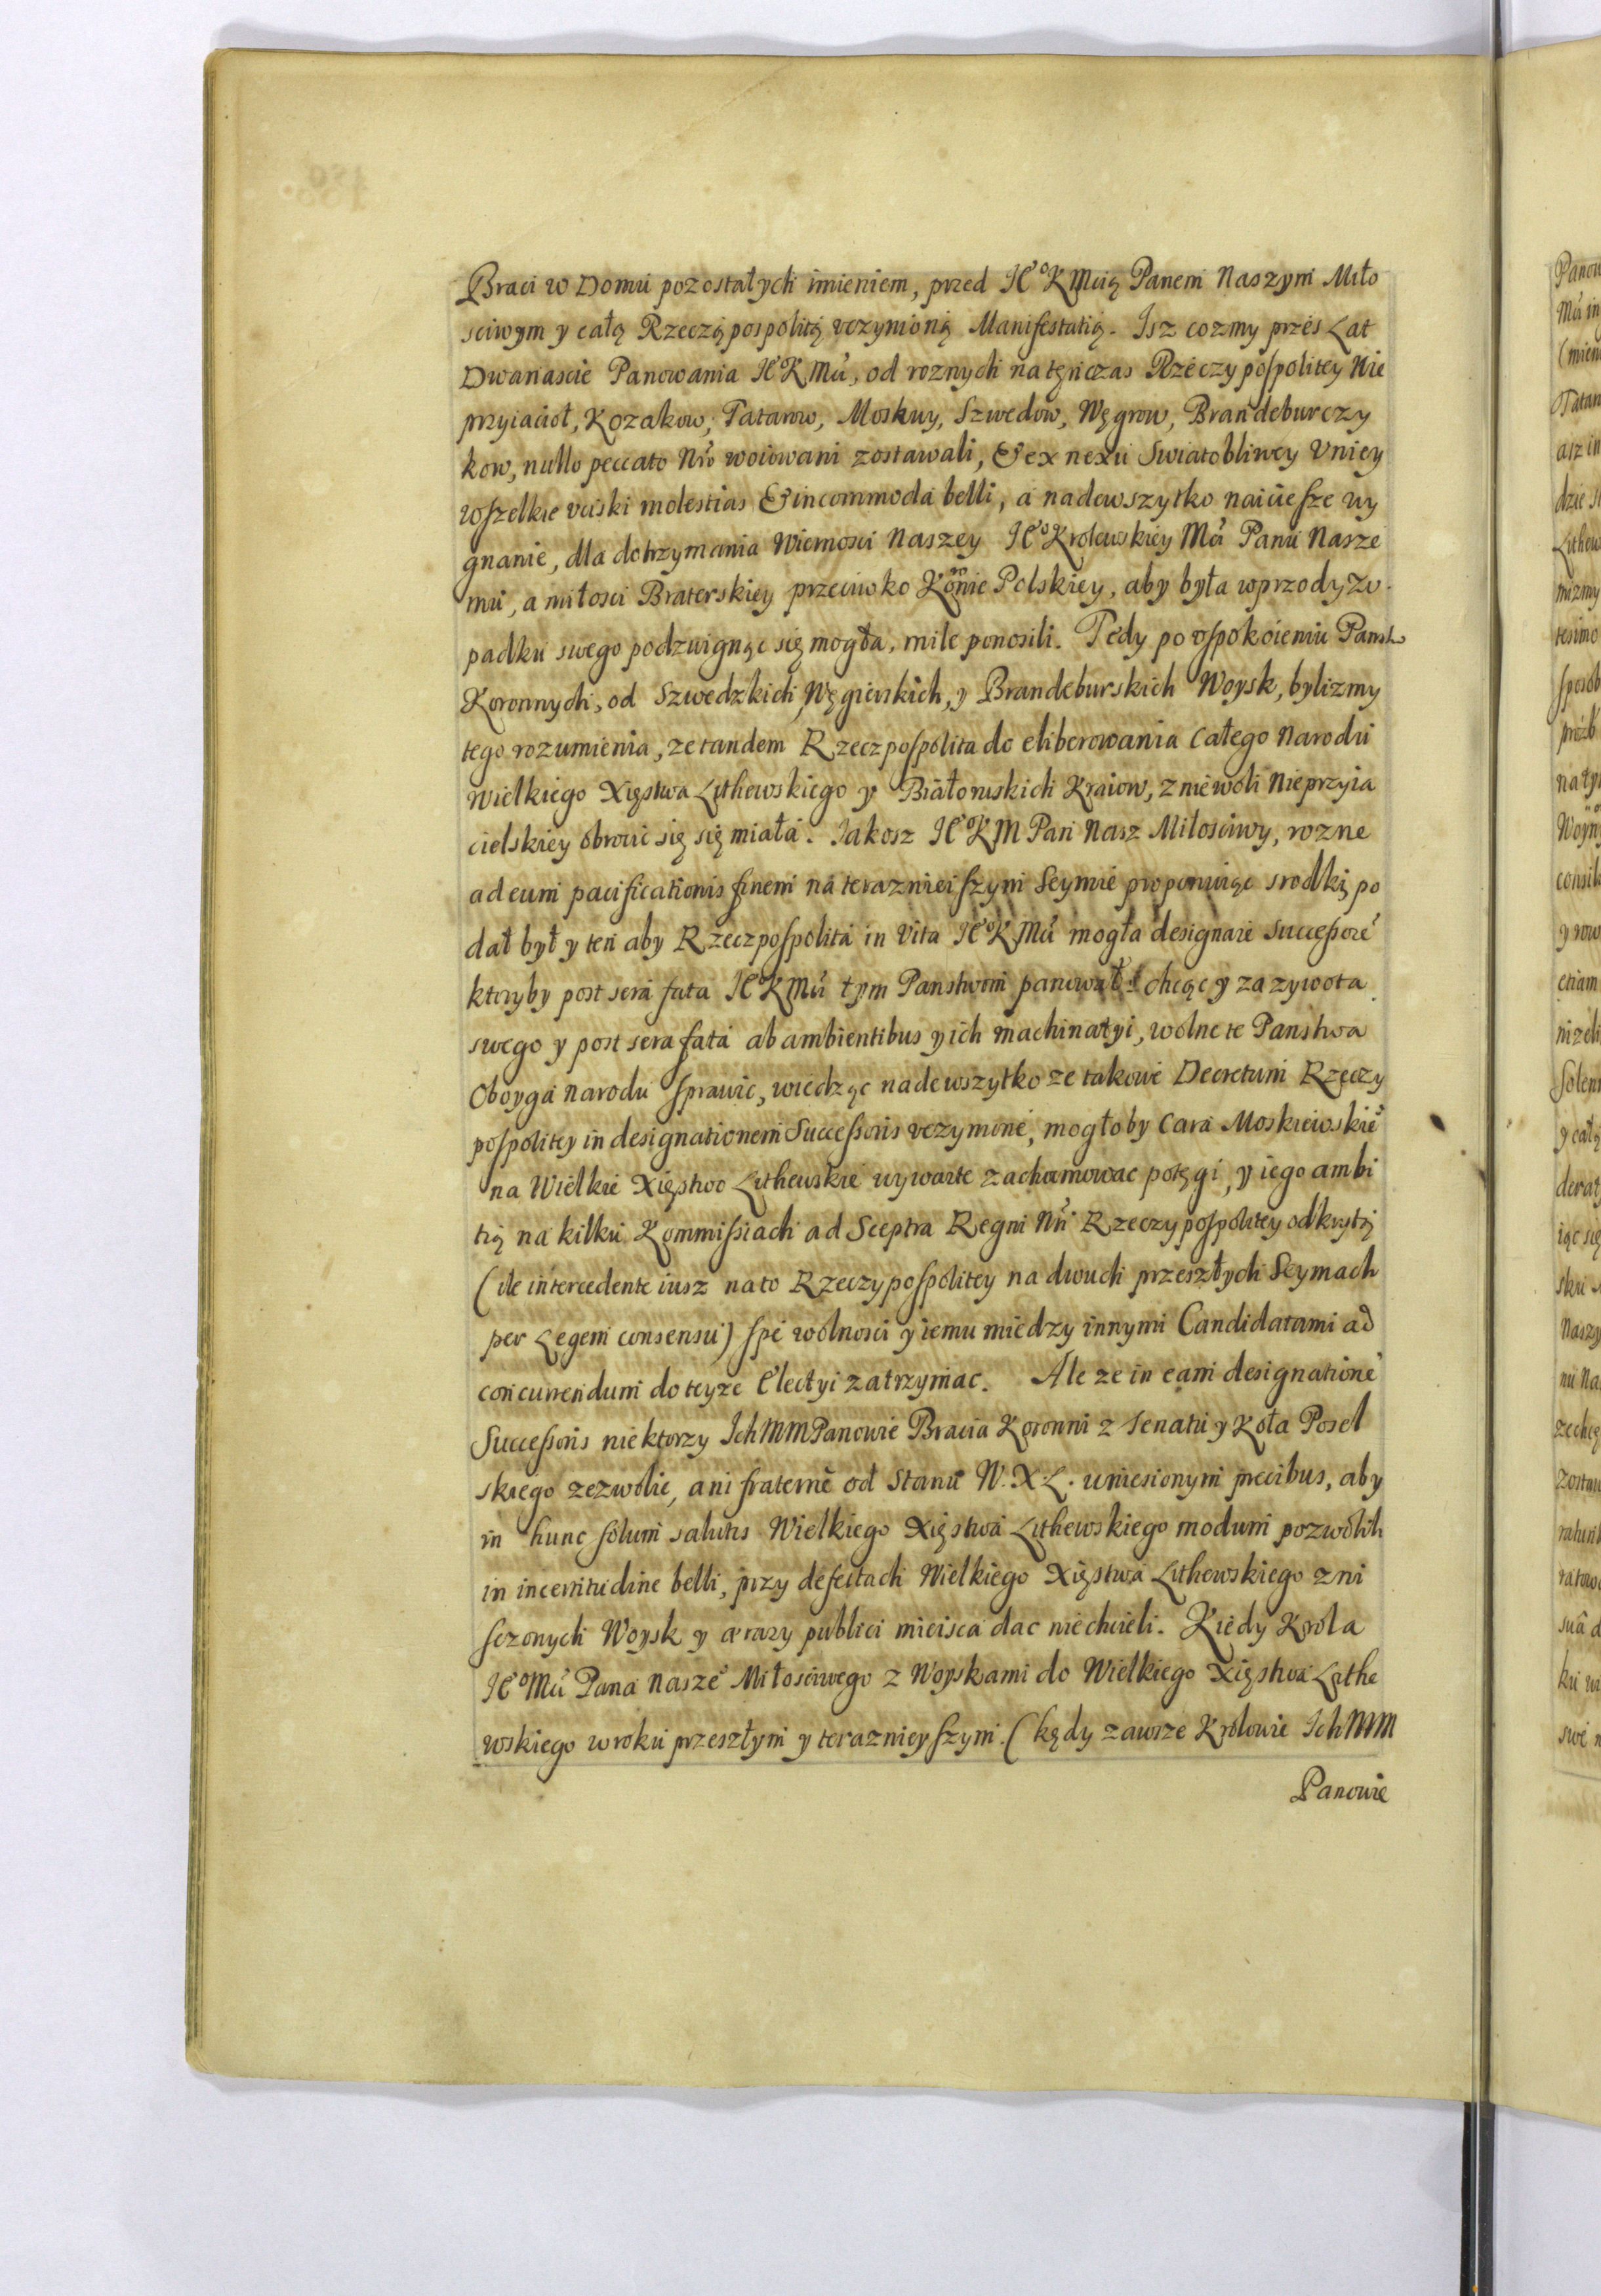 Braci w Domu pozostałych imieniem, przed JE° K Mcią Panem Naszym Miło
sciwym y całą Rzecząpospolitą vczynioną Manifestatią. Isz cozmy przes Lat
Dwanascie Panowania JE° K Mci, od roznych natęnczas Rzeczypospolitey Nie
przyiacioł, Kozakow, Tatarow, Moskwy, Szwedow, Węgrow, Brandeburczy
kow, nullo peccato Nro woiowani zostawali, & ex nexu Swiatobliwey Vniey
wszelkie vciski molestias & incommoda belli, a nadewszytko naicięsze wy
gnanie, dla dotrzymania Wiernosci Naszey JE° Krolewskiey Mci Panu Nasze
mu, a miłosci Braterskiey przeciwko Koronie Polskiey, aby była wprzody z v
padku swego podzwignąc się mogła, mile ponosili. Tedy po vspokoieniu Panstw
Koronnych, od Szwedzkich, Węgierskich, y Brandeburskich Woysk, bylizmy
tego rozumienia, ze tandem Rzeczpospolita do eliberowania całego Narodu
Wielkiego Xięstwa Lithewskiego y Białoruskich Kraiow, z niewoli Nieprzyia
cielskiey obrocic się się miała. Jakosz JE° K M Pan Nasz Miłosciwy, rozne
ad eum pacificationis finem na terazniejszym Seymie proponuiąc srodki, po
dał był y ten aby Rzeczpospolita in Vita JE° K Mci mogła designare Successorē
ktoryby post sera fata JE° K Mci tym Panstwom panował: chcąc y za zywota
swego y post sera fata ab ambientibus y ich machinatyi, wolne te Panstwa
Oboyga Narodu sprawic, wiedząc nadewszytko ze takowe Decretum Rzeczy
pospolitey in designationem Successoris vczynione, mogłoby Cara Moskiewskiē
na Wielkie Xięstwo Lithewskie wywarte zachamowac potęgi, y iego ambi
tią na kilku Kommissiach ad Sceptra Regni Nri Rzeczypospolitey odkrytą
(ile intercedente iusz na to Rzeczypospolitey na dwuch przeszłych Seymach
per Legem consensu) spe wolnosci y iemu miedzy innymi Candidatami ad
concurrendum do teyze Electyi zatrzymac. Ale ze in eam designationē
Successoris niektorzy Ich MM Panowie Bracia Koronni z Senatu y Koła Posel
skiego zezwolic, ani fraternè od Stanu W. X. L. wniesionym precibus, aby
in hunc solum salutis Wielkiego Xięstwa Lithewskiego modum pozwolili
in incertitudine belli, przy defectach Wielkiego Xięstwa Lithewskiego zni
sczonych Woysk y ærarij publici mieisca dac niechcieli. Kiedy Krola
JE° Mci Pana Nasze° Miłosciwego z Woyskami do Wielkiego Xięstwa Lithe
wskiego w roku przeszłym y terazniejszym. (kędy zawsze Krolowie Ich MM
Panowie